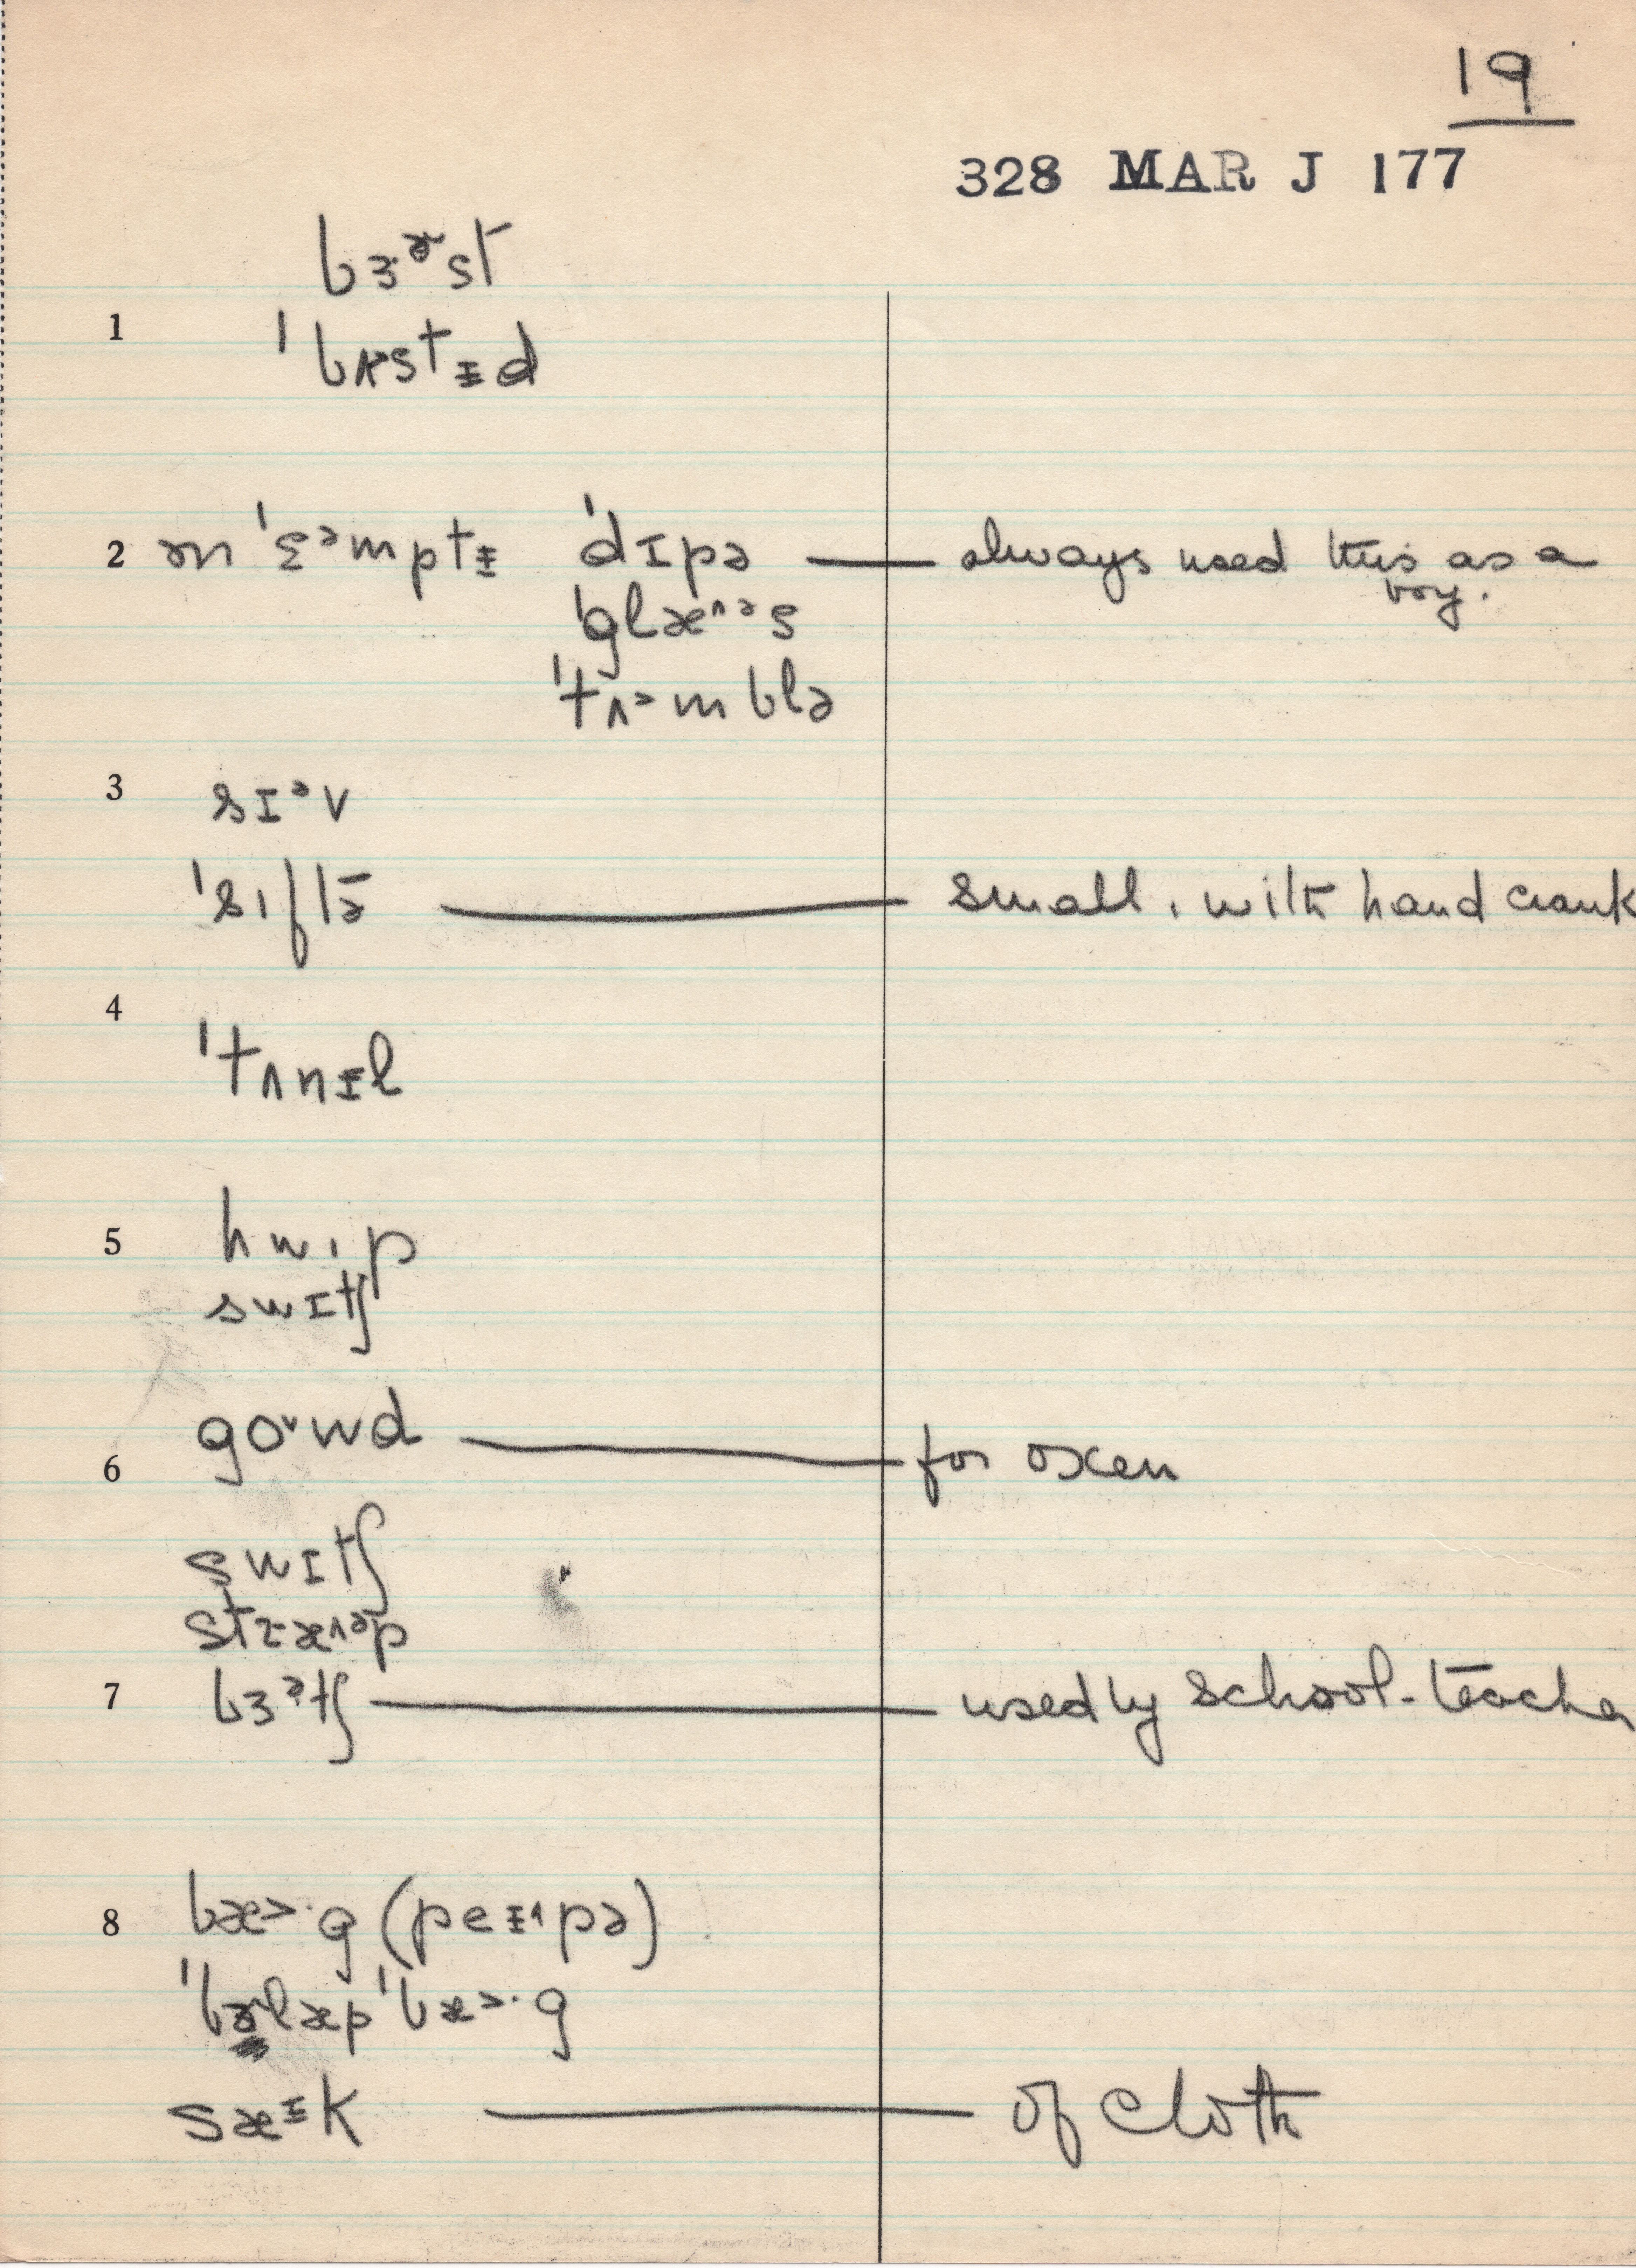 19
328 MAR J 177
bɜ·ɚst
1 ˈbʌstɪ̵d
2 ən ˈɛᵊmptɪ̵ ˈdɪpə — always used this as a
boy.
ˈglæ^ᵊs
ˈtʌ˃mblə
3 sɪᵊv
ˈsıftə — small, with hand crank
4 ˈtʌnɪ̵l
5 hwıp
swɪtʃ
6 goˇwd — for oxen
swɪtʃ
stræ^ᵊp
7 bɜᵊtʃ — used by school-teacher
8 bæ˃·g (peɪ̵˔pə)
ˈbɚlæp ˈbæ˃·g
sæᶦ̵k — of cloth